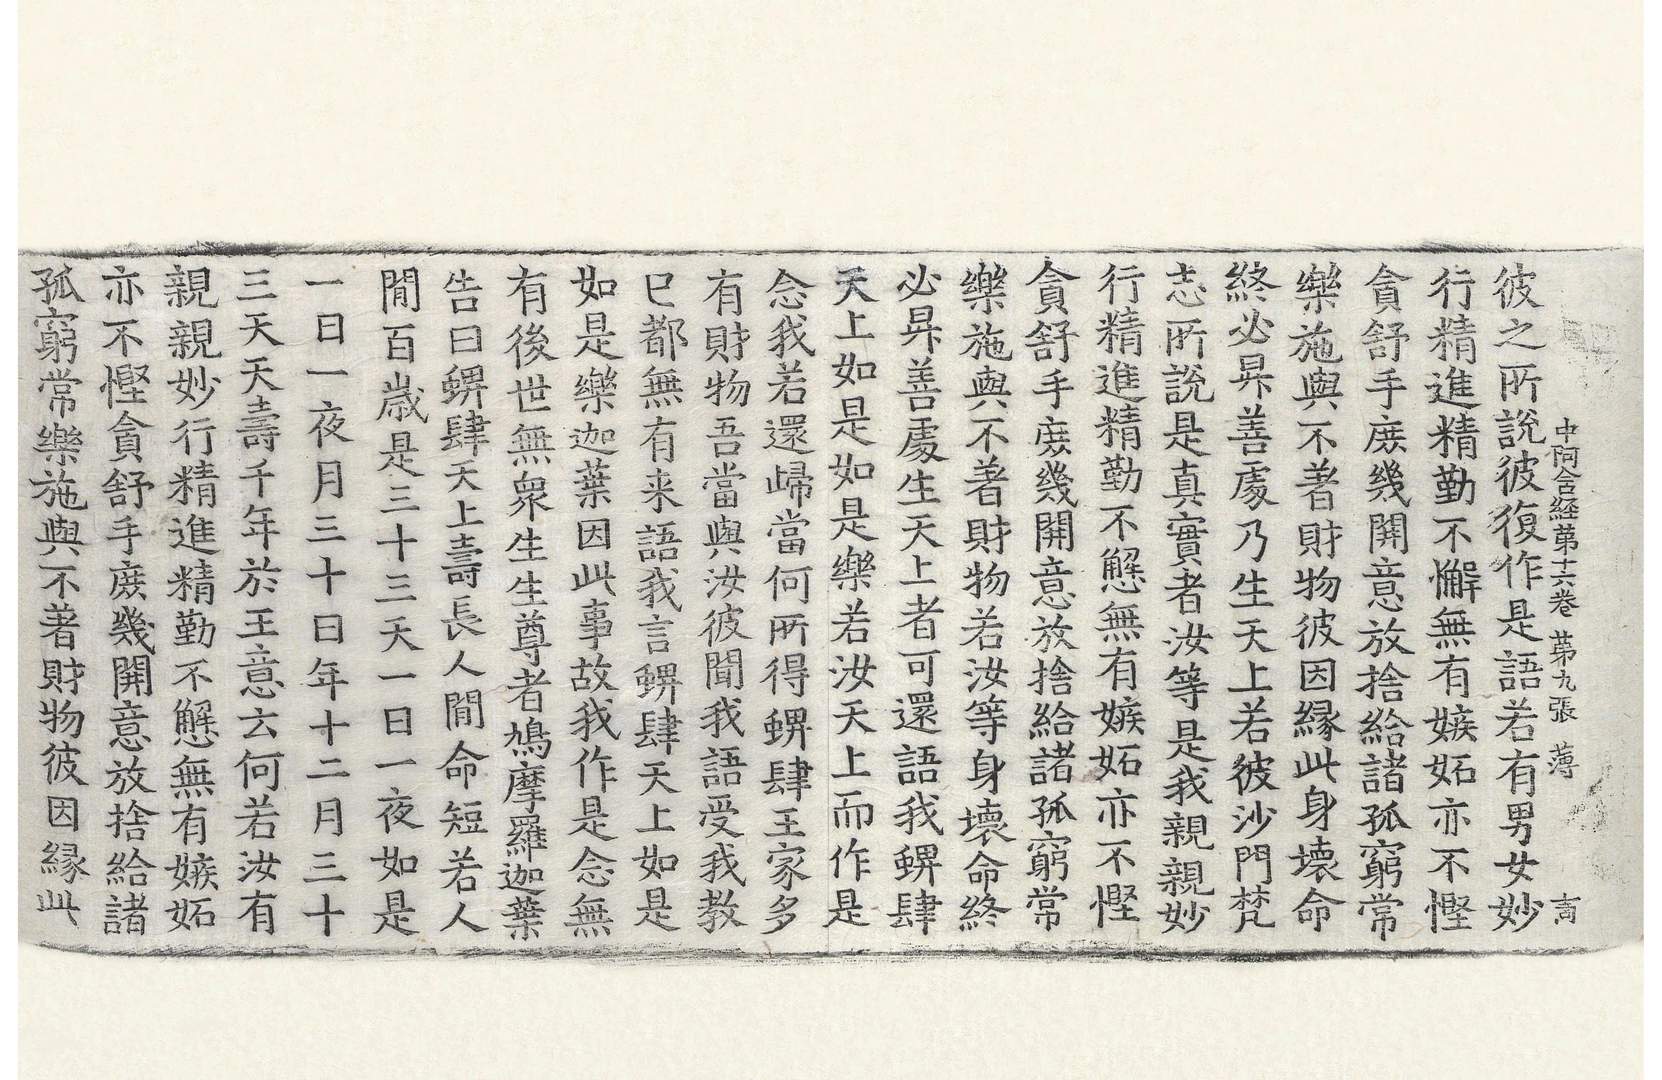 中阿含経第十六巻 苐九張 薄 啇
彼之所說彼復作是語若有男女妙
行精進精勤不懈無有嫉妬亦不慳
貪舒手庻幾開意放捨給諸孤窮常
樂施與不著財物彼因緣此身壞命
終必昇善處乃生天上若彼沙門梵
志所說是真實者汝等是我親親妙
行精進精勤不懈無有嫉妬亦不慳
貪舒手庻幾開意放捨給諸孤窮常
樂施與不著財物若汝等身壞命終
必昇善處生天上者可還語我蜱肆
天上如是如是樂若汝天上而作是
念我若還歸當何所得蜱肆王家多
有財物吾當與汝彼聞我語受我教
已都無有来語我言蜱肆天上如是
如是樂迦葉因此事故我作是念無
有後世無衆生生尊者鳩摩羅迦葉
告曰蜱肆天上壽長人間命短若人
間百歲是三十三天一日一夜如是
一日一夜月三十日年十二月三十
三天天壽千年於王意云何若汝有
親親妙行精進精勤不懈無有嫉妬
亦不慳貪舒手庻幾開意放捨給諸
孤窮常樂施與不著財物彼因緣此